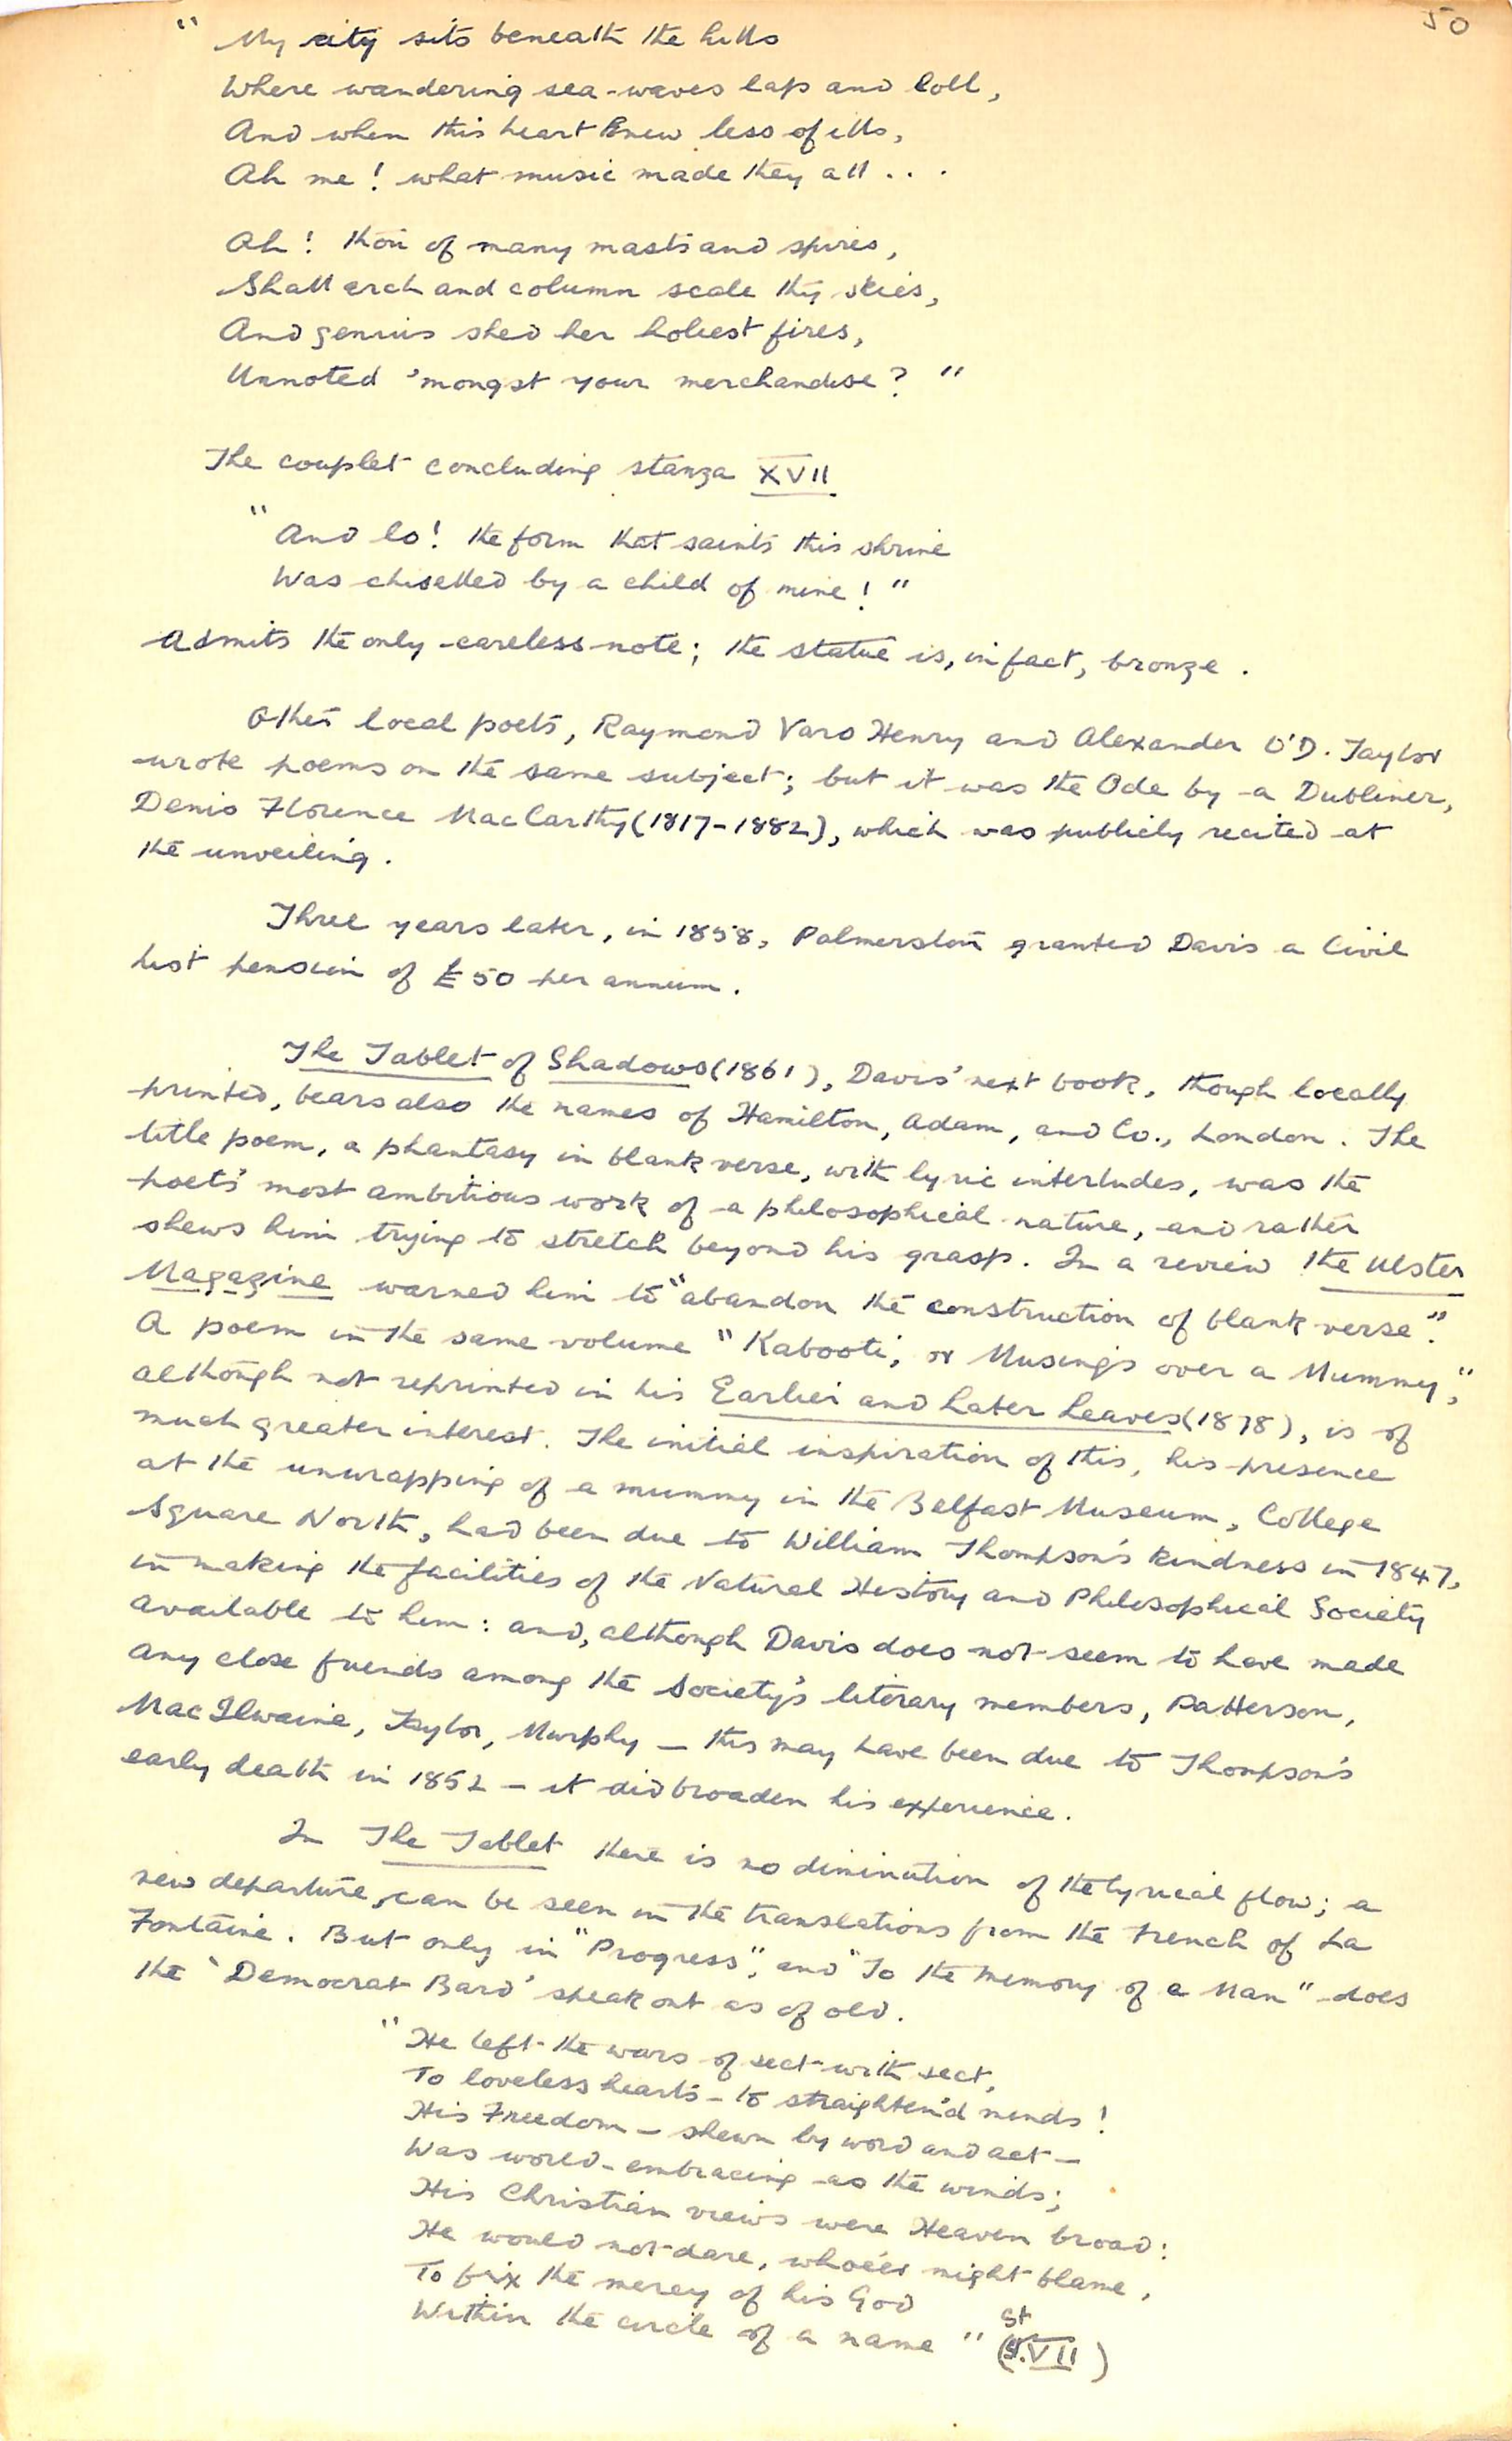 50
" My city sits beneath the hills
Where wandering sea-waves lap and loll,
And when this heart knew less of ills,
Ah me! what music made they all . . .
Ah! thou of many masts and spires,
Shall arch and column scale thy skies,
And genius shed her holiest fires,
Unnoted 'mongst your merchandise? "
The couplet concluding stanza XVII
" And lo! the form that saints this shrine
Was chiselled by a child of mine! "
Admits the only careless note; the statue is, in fact, bronze.
Other local poets, Raymond Varo Henry and Alexander O'D. Taylor
wrote poems on the same subject; but it was the Ode by a Dubliner,
Denis Florence MacCarthy (1817-1882), which was publicly recited at
the unveiling.
Three years later, in 1858, Palmerston granted Davis a Civil
list pension of £50 per annum.
The Tablet of Shadows (1861), Davis' next book, though locally
printed, bears also the names of Hamilton, Adam, and Co., London. The
title poem, a phantasy in blank verse, with lyric interludes, was the
poet's most ambitious work of a philosophical nature, and rather
shews him trying to stretch beyond his grasp. In a review the Ulster
Magazine warned him to "abandon the construction of blank verse".
A poem in the same volume "Kabooti, or Musings over a Mummy",
although not reprinted in his Earlier and Later Leaves (1878), is of
much greater interest. The initial inspiration of this, his presence
at the unwrapping of a mummy in the Belfast Museum, College
Square North, had been due to William Thompson's kindness in 1847,
in making the facilities of the Natural History and Philosophical Society
available to him: and, although Davis does not seem to have made
any close friends among the Society's literary members, Patterson,
MacIlwaine, Taylor, Murphy — this may have been due to Thompson's
early death in 1852 — it did broaden his experience.
In The Tablet there is no diminution of the lyrical flow; a
new departure, can be seen in the translations from the French of La
Fontaine. But only in "Progress", and "To the Memory of a Man" does
the 'Democrat Bard' speak out as of old.
" He left the wars of sect with sect,
To loveless hearts — to straighten'd minds!
His Freedom — shewn by word and act —
Was world-embracing as the winds;
His Christian views were Heaven broad:
He would not dare, whoe'er might blame,
To fix the mercy of his God
Within the circle of a name " (St VII)